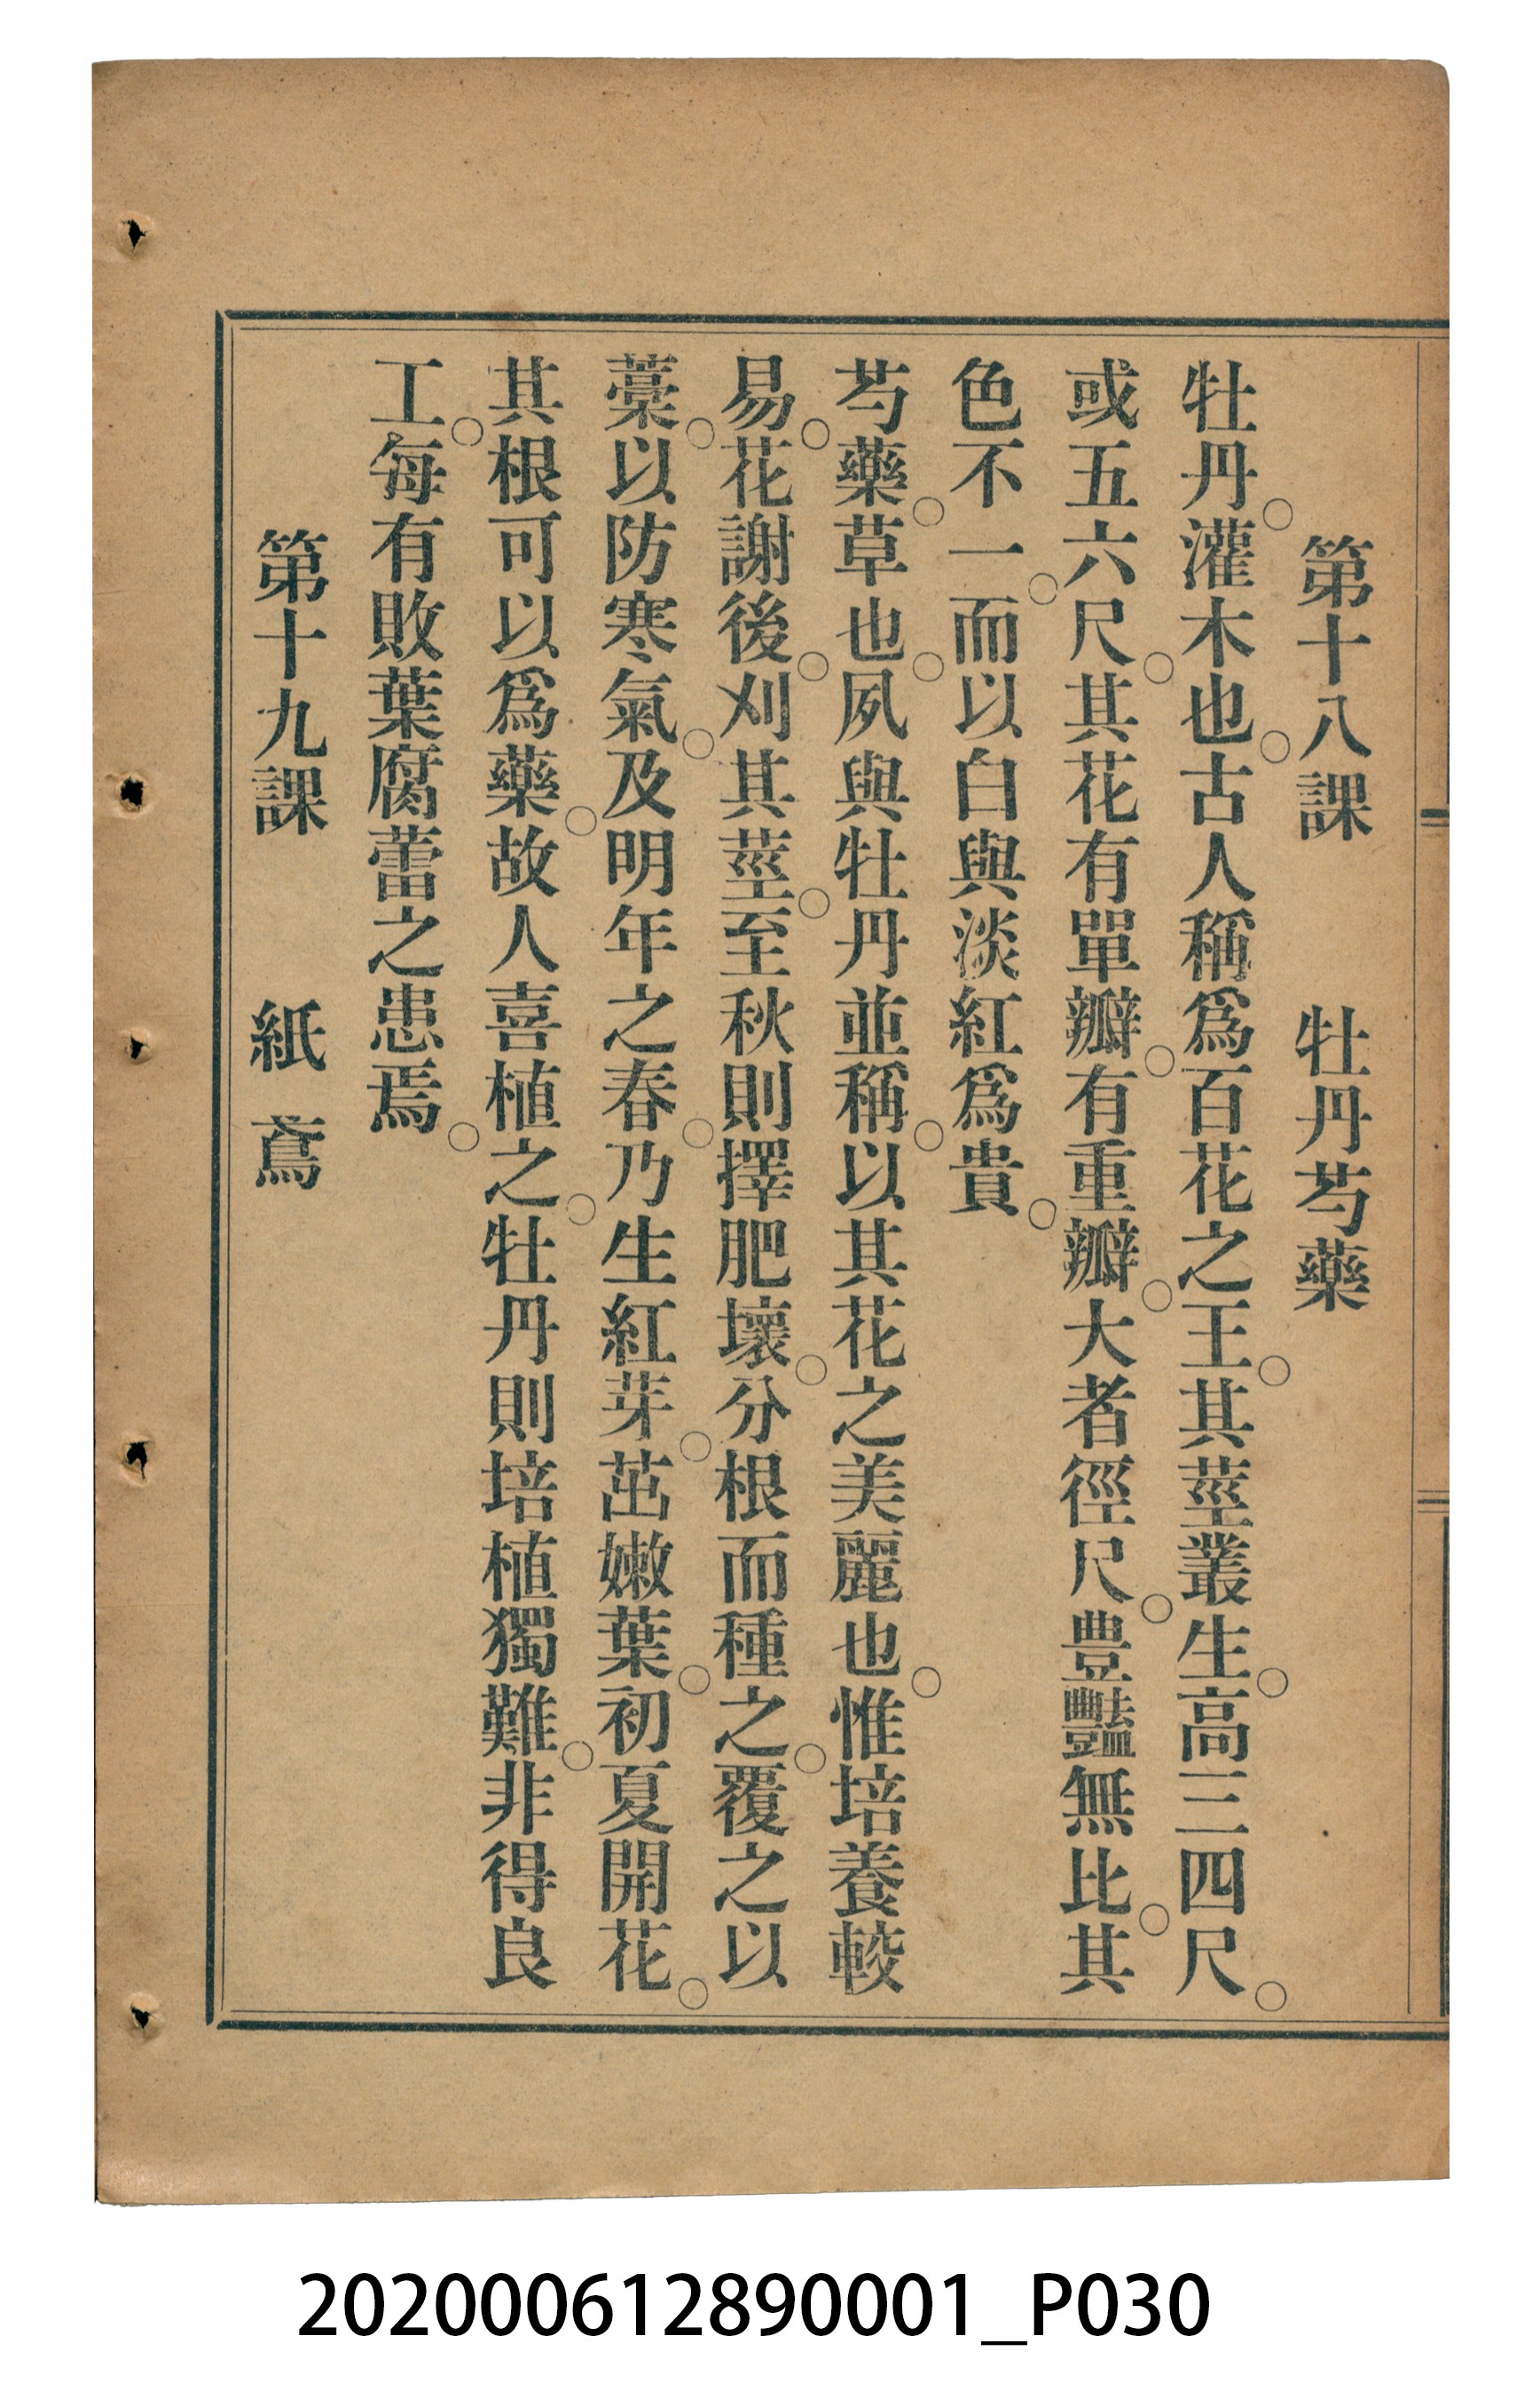 第十八課　牡丹芍藥
牡丹。灌木也。古人稱爲百花之王。其莖叢生。高三四尺。
或五六尺。其花有單瓣。有重瓣。大者徑尺。豊豔無比。其
色不一。而以白與淡紅爲貴。
芍藥。草也。夙與牡丹並稱。以其花之美麗也。惟培養較
易。花謝後。刈其莖。至秋則擇肥壤。分根而種之。覆之以
藁。以防寒氣。及明年之春。乃生紅芽。茁嫩葉。初夏開花。
其根可以爲藥。故人喜植之。牡丹則培植獨難。非得良
工。每有敗葉腐蕾之患焉。
第十九課　紙鳶
202000612890001_P030